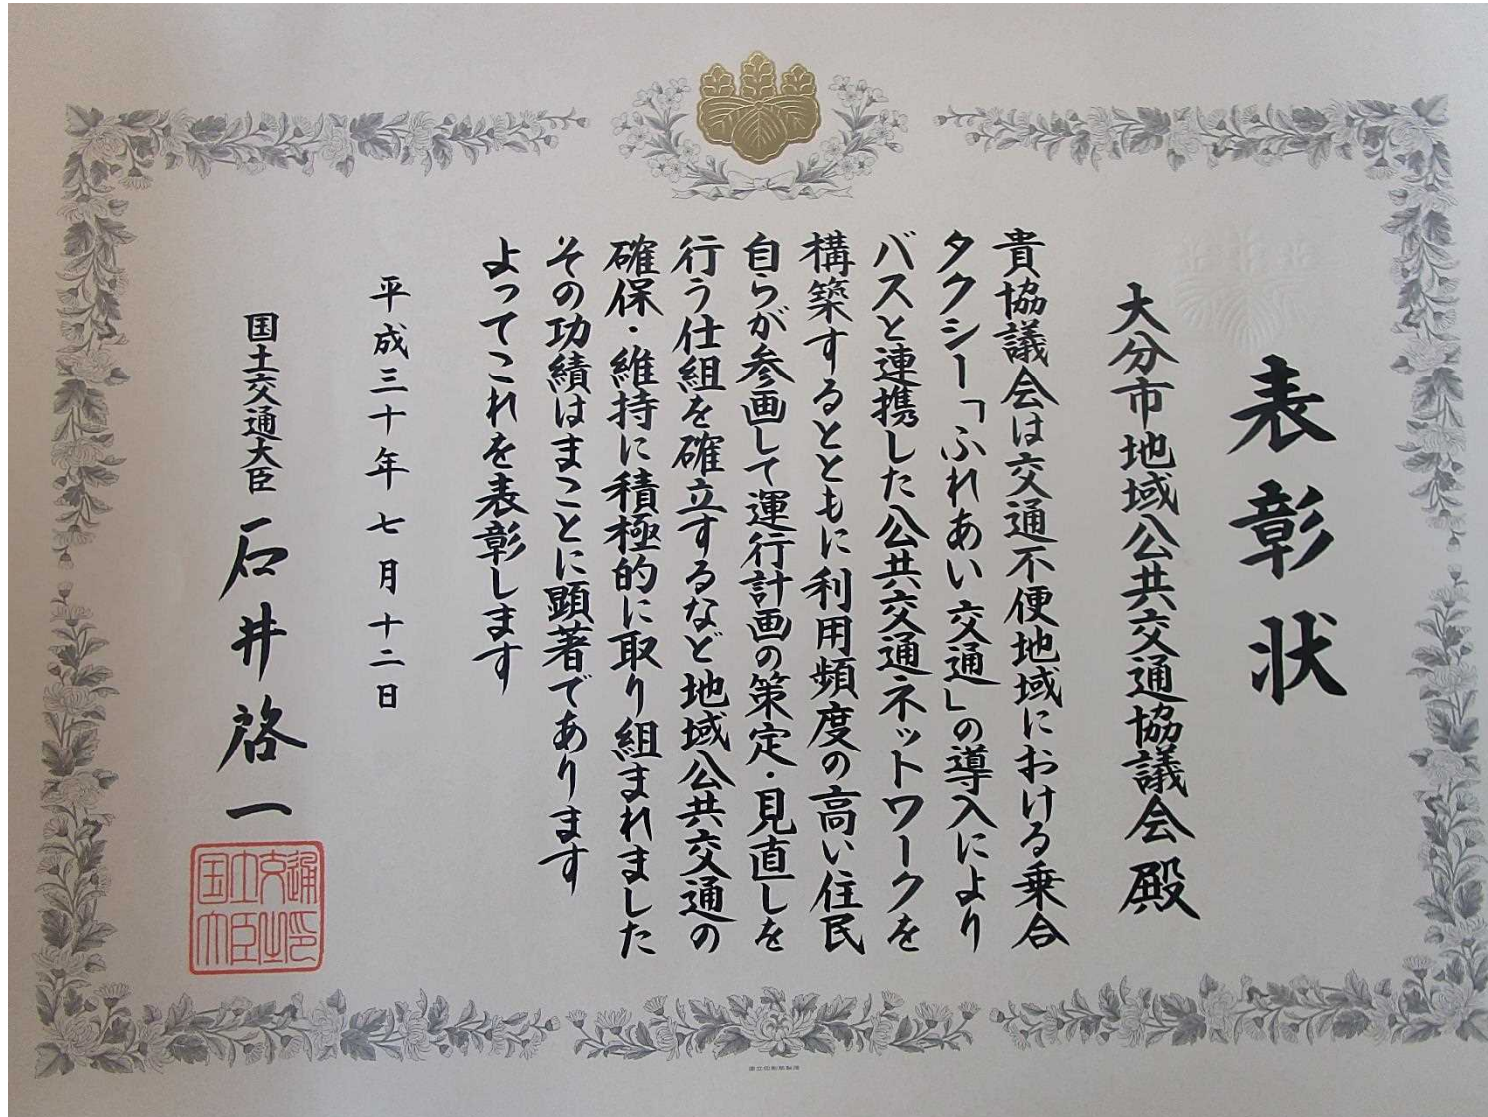 表彰状
大分市地域公共交通協議会殿
貴協議会は交通不便地域における乗合
タクシー「ふれあい交通」の導入により
バスと連携した公共交通ネットワークを
構築するとともに利用頻度の高い住民
自らが参画して運行計画の策定・見直しを
行う仕組を確立するなど地域公共交通の
確保・維持に積極的に取り組まれました
その功績はまことに顕著であります
よってこれを表彰します
平成三十年七月十二日
国土交通大臣 石井啓一